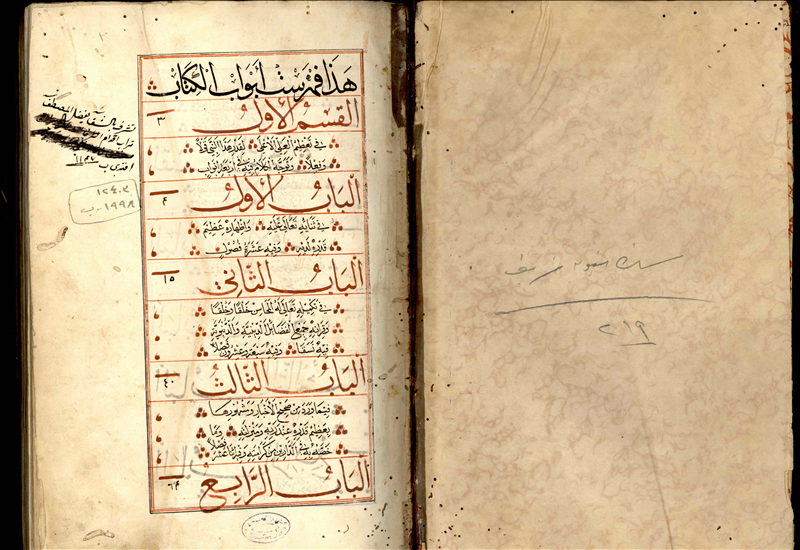 هَذَا فهرست أبواب الكتاب
القسم الأول ٣
في تعظيم العلي الأعلى لقدر هذا النبي قولا
وفعلا وتوجه الكلام فيه في أربعة أبواب
الباب الأول ٤
في ثنائه تعالى عليه وإظهاره عظيم
قدره لديه وفيه عشرة فصول
الباب الثاني ١٥
في تكميله تعالى له المحاسن خلقا وخلقا
وقرانه جميع الفضائل الدينية والدنيوية
فيه نسقا وفيه سبعة وعشرون فصلا
الباب الثالث ٤٠
فيما ورد من صحيح الأخبار ومشهورها
بعظيم قدره عند ربه ومنزلته وما
خصه به في الدارين من كرامته وفيه اثنا عشر فصلا
الباب الرابع ٦٤
١٩٩٨
٢١٩